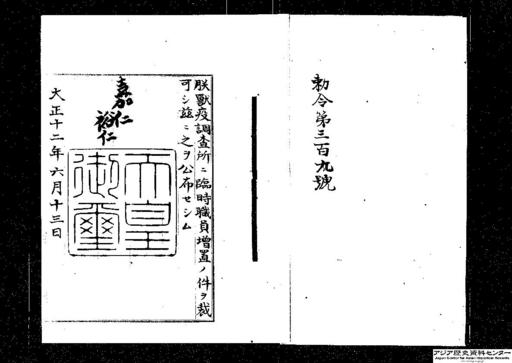 勅令第三百九號
朕獸疫調査所ニ臨時職員增置ノ件ヲ裁
可シ茲ニ之ヲ公布セシム
嘉仁
裕仁
天皇
御璽
大正十二年六月十三日
アジア歴史資料センター
Japan Center for Asian Historical Records